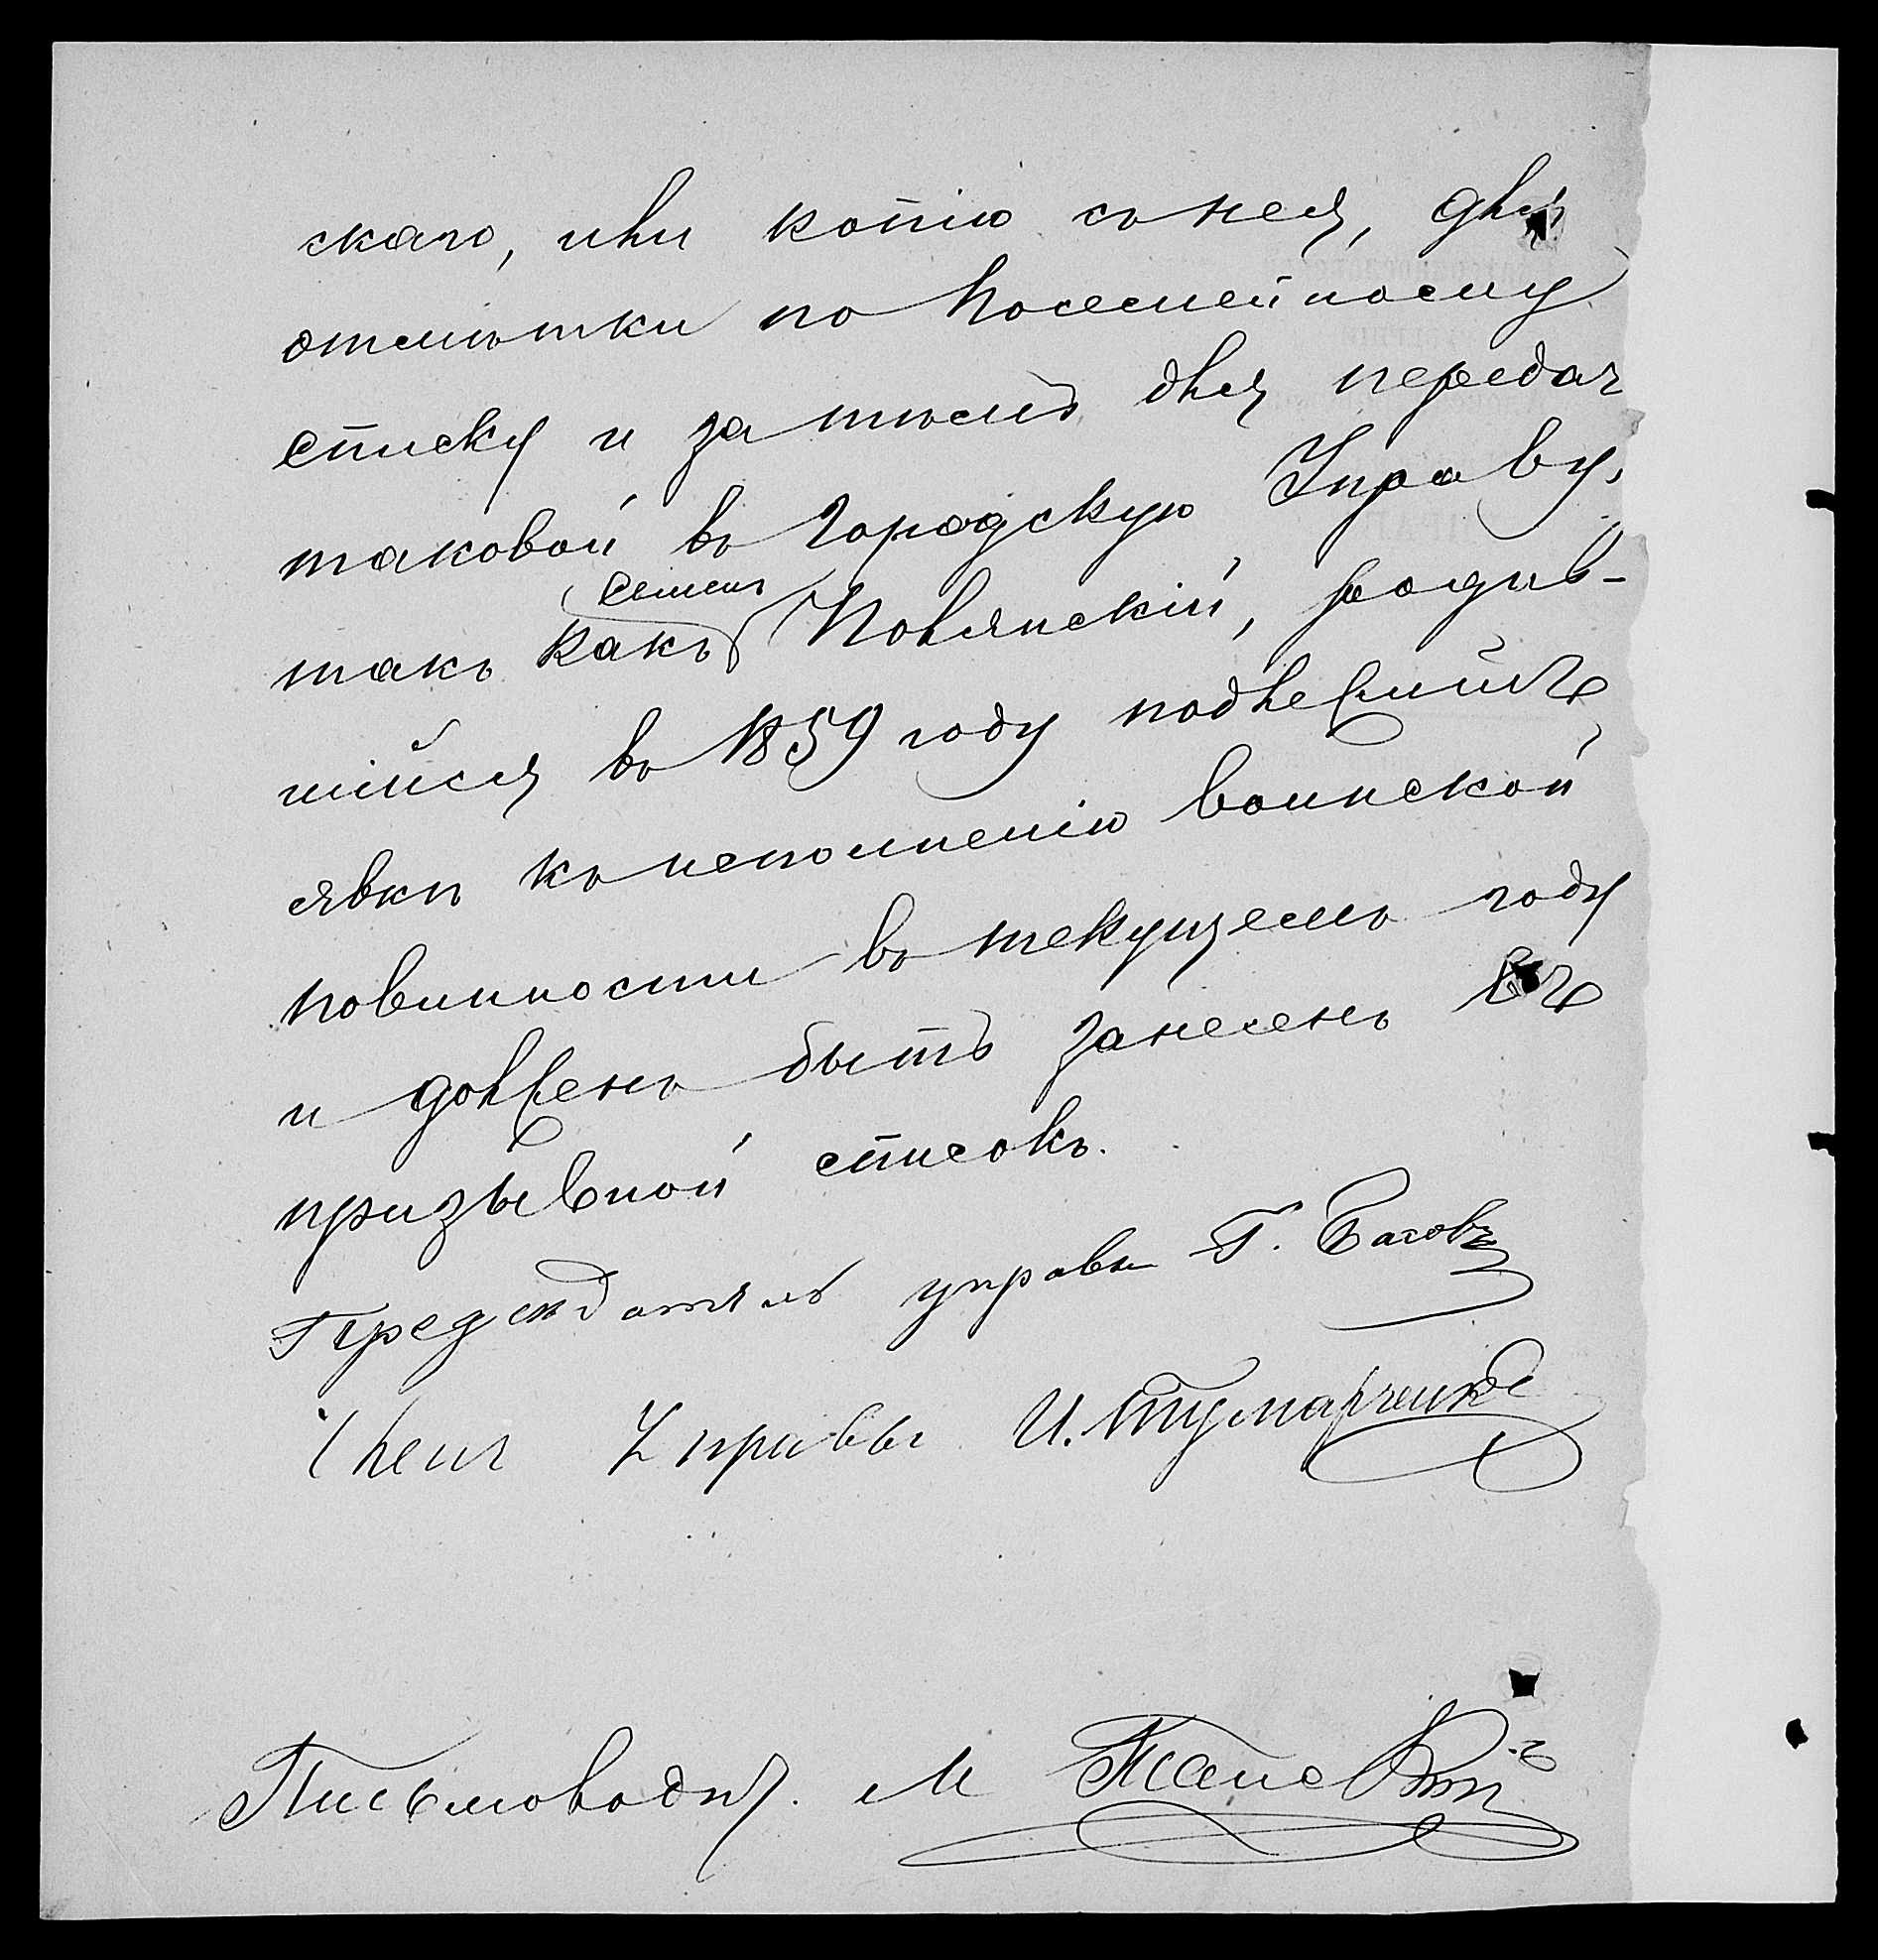 скаго, или копію съ нея, для
отмѣтки по посемейному
списку и затѣмъ для передач
таковой въ Городскую Управу,
такъ какъ Семенъ Полянскій, родив-
шійся въ 1859 году подлежитъ
явкѣ къ исполненію воинской
повинности въ текущемъ году
и долженъ быть занесенъ въ
призывной списокъ.
Предсѣдатель управы Г.
Членъ Управы И.
Письмоводит. М